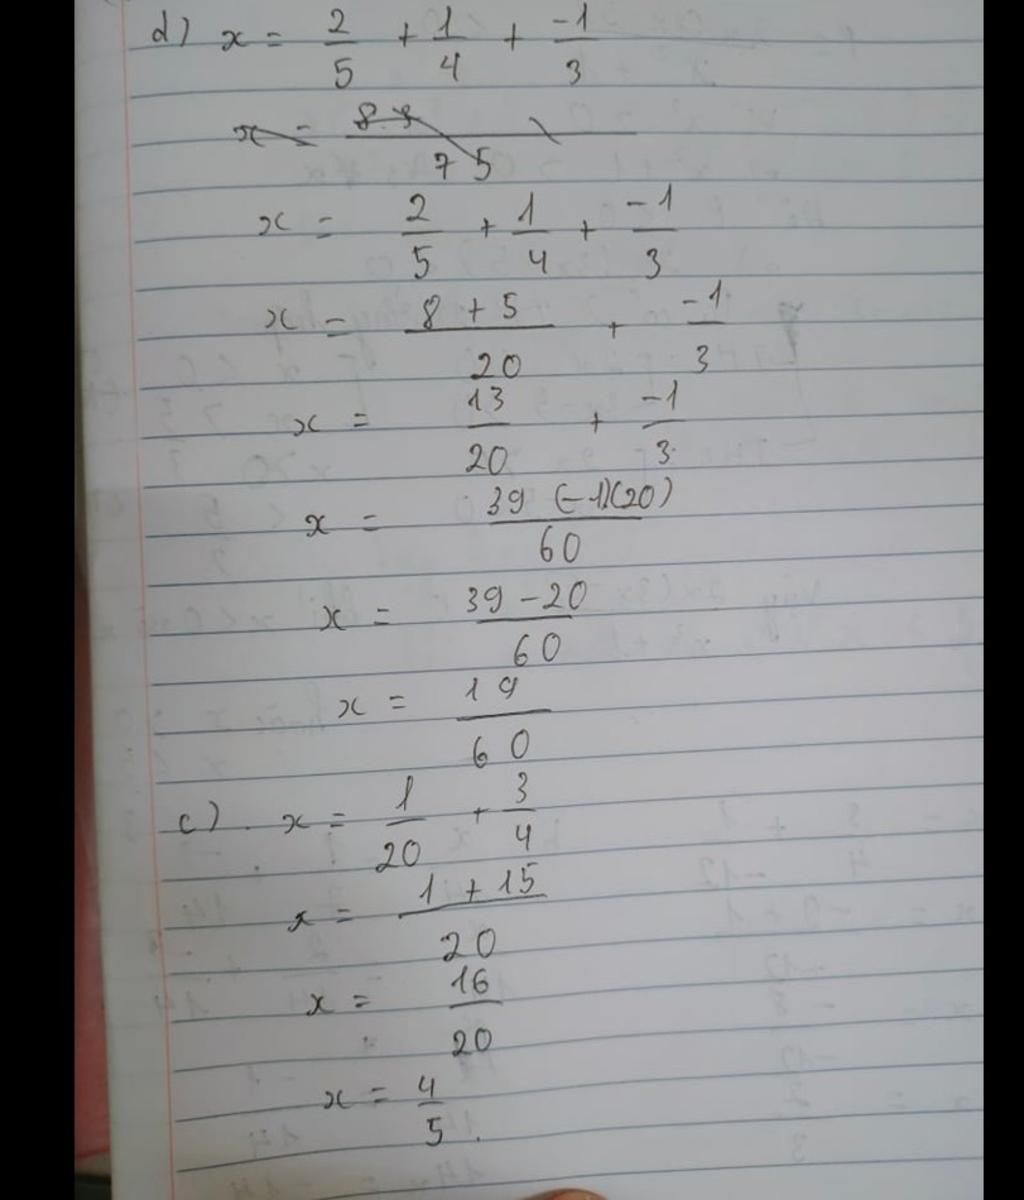 d) x = 2/5 + 1/4 + -1/3
x = 8.3 / 75
x = 2/5 + 1/4 + -1/3
x = 8 + 5 / 20 + -1/3
x = 13/20 + -1/3
x = 39 (-1)(20) / 60
x = 39 - 20 / 60
x = 19 / 60
c). x = 1/20 + 3/4
x = 1 + 15 / 20
x = 16 / 20
x = 4/5.